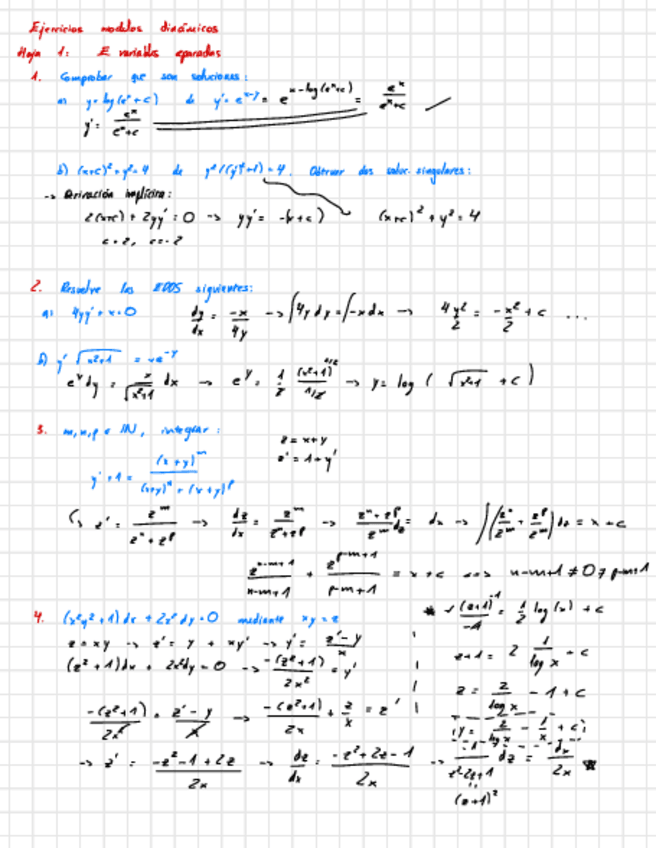 Ejercicios modelos dinámicos
Hoja 1: E variables separadas
1. Comprobar que son soluciones:
a) y = log(e^x + c) de y' = e^{x-y} = e^{x - log(e^x + c)} = e^x / (e^x + c) ✓
y' = e^x / (e^x + c)
b) (x+c)² + y² = 4 de y²((y')² + 1) = 4. Obtener dos soluc. singulares:
→ Derivación implícita:
2(x+c) + 2yy' = 0 → yy' = -(x+c) (x+c)² + y² = 4
2. Resuelve las EDOS siguientes:
a) 4yy' + x = 0 dy/dx = -x/4y → ∫4y dy = ∫-x dx → 4y²/2 = -x²/2 + c ...
b) y' √(x²+1) = xe^{-y}
e^y dy = x/√(x²+1) dx → e^y = 1/2 (x²+1)^{1/2} / 1/2 → y = log (√(x²+1) + c)
3. m, n, p ∈ IN, integrar:
z = x+y
z' = 1+y'
y' + 1 = (x+y)^m / ((x+y)^n + (x+y)^p)
↳ z' = z^m / (z^n + z^p) → dz/dx = z^m / (z^n + z^p) → (z^n + z^p) / z^m dz = dx → ∫(z^n/z^m + z^p/z^m) dz = x + c
z^{n-m+1} / (n-m+1) + z^{p-m+1} / (p-m+1) = x + c ⟺ n-m+1 ≠ 0 ≠ p-m+1
4. (x²y²+1) dx + 2x² dy = 0 mediante xy = z
z = xy → z' = y + xy' → y' = (z'-y)/x
(z²+1)dx + 2x²dy = 0 → -(z²+1)/2x² = y'
-(z²+1)/2x² = (z'-y)/x → -(z²+1)/2x + z/x = z'
→ z' = (-z²-1+2z)/2x → dz/dx = (-z²+2z-1)/2x → -1/(z²-2z+1) dz = dx/2x *
(z+1)²
* √ (z+1)^{-1}/-1 = 1/2 log(x) + c
z+1 = 2 1/log x + c
z = 2/log x - 1 + c
y = 2/x log x - 1/x + c